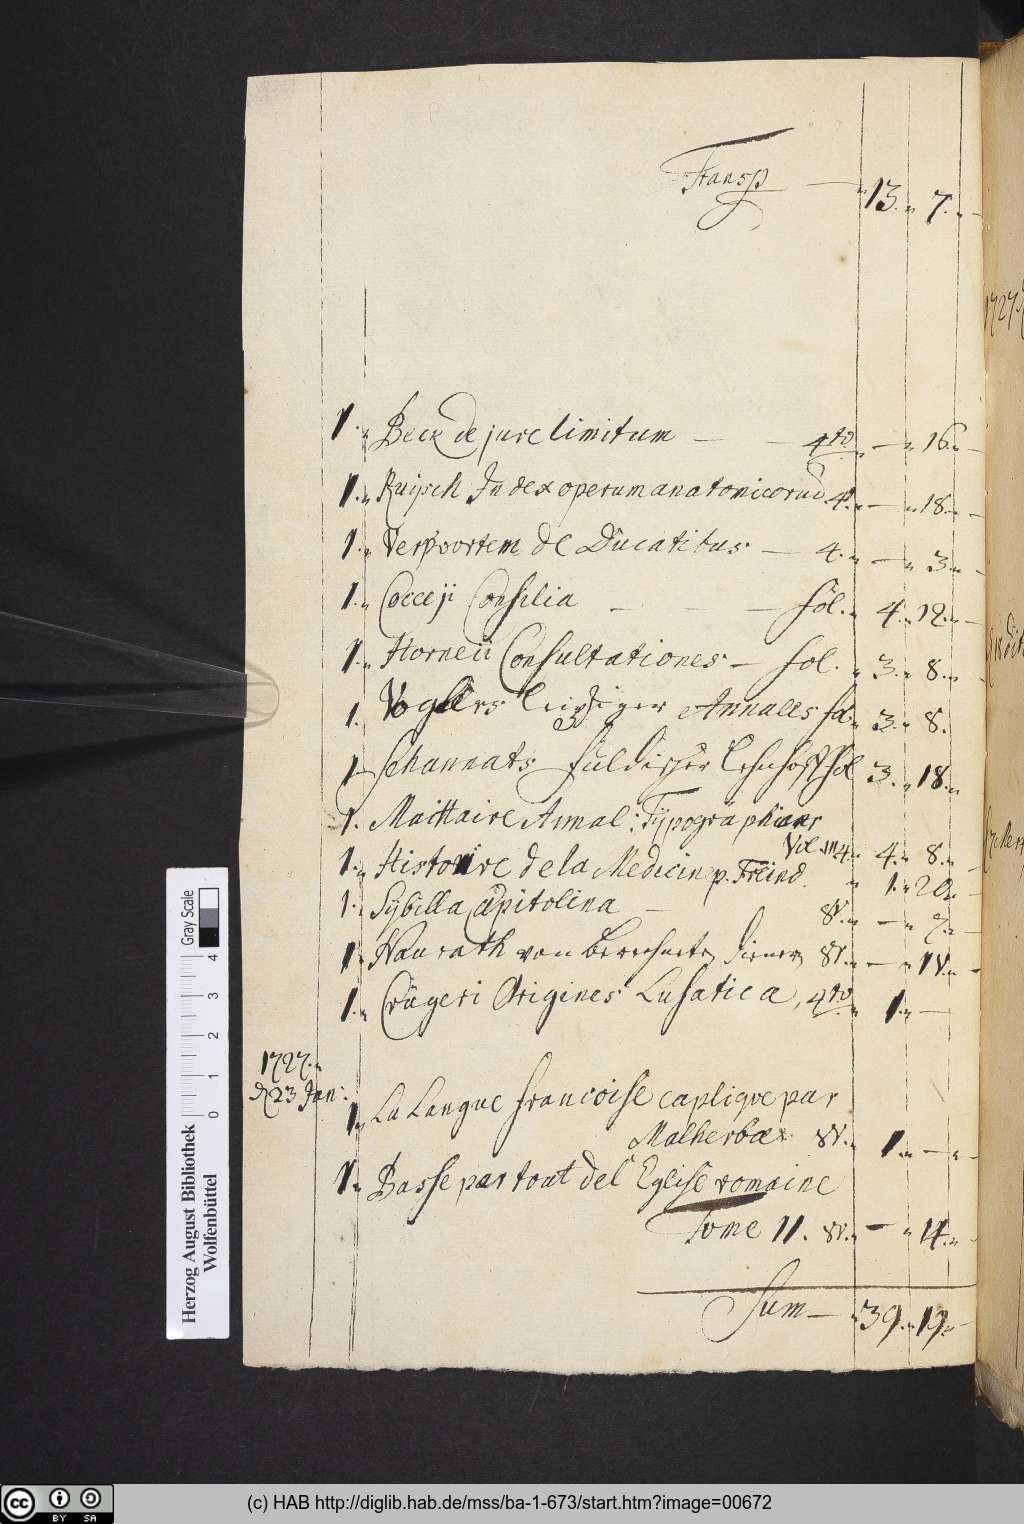 Transp — 13. 7.
1. Beck de jure limitum — — 4to — 16.
1. Ruijsch Index operum anatomicorum 4. — 18.
1. Verpoortem de Ducatibus — 4. — 3.
1. Cocceji Consilia — — — fol. 4. 12.
1. Horneii Consultationes — fol. 3. 8.
1. Voglers Leipziger Annales fol. 3. 8.
1 Schannats Fuldischer Lehnhoff fol 3. 18.
1. Maittaire Annal: Typographicor
Vol. in 4. 4. 8.
1. Histoire de la Medicin p. Freind. 1. 20.
1. Sybilla Capitolina — 8v. —
1. Naurath von 8v. — 14.
1. Crügeri Origines Lusatica, 4to. 1. —
1727.
d 23 Jan:
1. La Langue francoise expliqve par
Malherbe 8v. 1. —
1. Basse par tout del' Eglise romaine
Tome II. 8v. — 14.
Sum — 39. 19.
1727
Gray Scale
0 1 2 3 4
Herzog August Bibliothek
Wolfenbüttel
CC BY SA
(c) HAB http://diglib.hab.de/mss/ba-1-673/start.htm?image=00672